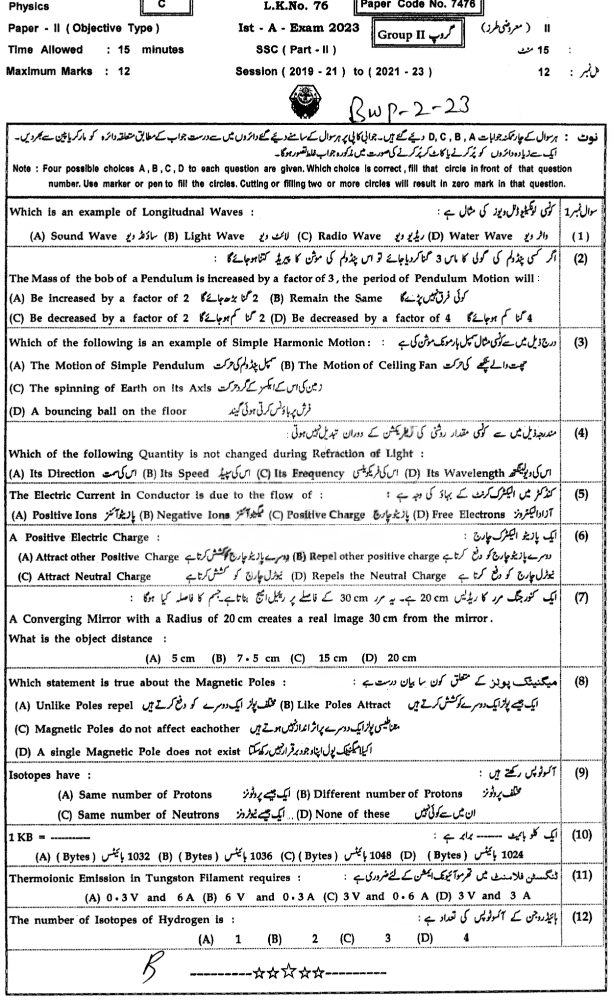 Physics C L.K.No. 76 Paper Code No. 7476
Paper - II ( Objective Type ) Ist - A - Exam 2023 Group II گروپ II (معروضی طرز)
Time Allowed : 15 minutes SSC ( Part - II ) 15 منٹ :
Maximum Marks : 12 Session ( 2019 - 21 ) to ( 2021 - 23 ) 12
BWP-2-23
نوٹ : ہر سوال کے چار ممکنہ جوابات D, C, B, A دیئے گئے ہیں۔ جوابی کاپی پر ہر سوال کے سامنے دیئے گئے دائروں میں سے درست جواب کے مطابق متعلقہ دائرہ کو مارکر یا پین سے بھر دیں۔
ایک سے زیادہ دائروں کو پُر کرنے یا کاٹ کر پُر کرنے کی صورت میں مذکورہ جواب غلط تصور ہوگا۔
Note : Four possible choices A , B , C , D to each question are given. Which choice is correct , fill that circle in front of that question
number. Use marker or pen to fill the circles. Cutting or filling two or more circles will result in zero mark in that question.
Which is an example of Longitudnal Waves : کونسی لونگیٹیوڈنل ویوز کی مثال ہے : سوال نمبر 1
(A) Sound Wave ساؤنڈ ویو (B) Light Wave لائٹ ویو (C) Radio Wave ریڈیو ویو (D) Water Wave واٹر ویو (1)
اگر کسی پنڈولم کی گولی کا ماس 3 گنا کر دیا جائے تو اس پنڈولم کی موشن کا پیریڈ کتنا ہو جائے گا : (2)
The Mass of the bob of a Pendulum is increased by a factor of 3 , the period of Pendulum Motion will :
(A) Be increased by a factor of 2 2 گنا بڑھ جائے گا (B) Remain the Same کوئی فرق نہیں پڑے گا
(C) Be decreased by a factor of 2 2 گنا کم ہو جائے گا (D) Be decreased by a factor of 4 4 گنا کم ہو جائے گا
Which of the following is an example of Simple Harmonic Motion : درج ذیل میں سے کونسی مثال سمپل ہارمونک موشن کی ہے : (3)
(A) The Motion of Simple Pendulum سمپل پنڈولم کی حرکت (B) The Motion of Ceiling Fan چھت والے پنکھے کی حرکت
(C) The spinning of Earth on Its Axis زمین کی اس کے ایکسز کے گرد حرکت
(D) A bouncing ball on the floor فرش پر باؤنس کرتی ہوئی گیند
مندرجہ ذیل میں سے کونسی مقدار روشنی کی ریفریکشن کے دوران تبدیل نہیں ہوتی : (4)
Which of the following Quantity is not changed during Refraction of Light :
(A) Its Direction اس کی سمت (B) Its Speed اس کی سپیڈ (C) Its Frequency اس کی فریکوئنسی (D) Its Wavelength اس کی ویولینگتھ
The Electric Current in Conductor is due to the flow of : کنڈکٹر میں الیکٹرک کرنٹ کے بہاؤ کی وجہ ہے : (5)
(A) Positive Ions پازیٹو آئنز (B) Negative Ions نیگیٹو آئنز (C) Positive Charge پازیٹو چارج (D) Free Electrons آزاد الیکٹرونز
A Positive Electric Charge : ایک پازیٹو الیکٹرک چارج : (6)
(A) Attract other Positive Charge دوسرے پازیٹو چارج کو کشش کرتا ہے (B) Repel other positive charge دوسرے پازیٹو چارج کو دفع کرتا ہے
(C) Attract Neutral Charge نیوٹرل چارج کو کشش کرتا ہے (D) Repels the Neutral Charge نیوٹرل چارج کو دفع کرتا ہے
ایک کنورجنگ مرر کا ریڈیس 20 cm ہے۔ یہ مرر 30 cm کے فاصلے پر رئیل امیج بناتا ہے۔ جسم کا فاصلہ کیا ہوگا : (7)
A Converging Mirror with a Radius of 20 cm creates a real image 30 cm from the mirror.
What is the object distance :
(A) 5 cm (B) 7 • 5 cm (C) 15 cm (D) 20 cm
Which statement is true about the Magnetic Poles : میگنیٹک پولز کے متعلق کون سا بیان درست ہے : (8)
(A) Unlike Poles repel مختلف پولز ایک دوسرے کو دفع کرتے ہیں (B) Like Poles Attract ایک جیسے پولز ایک دوسرے کو کشش کرتے ہیں
(C) Magnetic Poles do not affect eachother مقناطیسی پولز ایک دوسرے پر اثر انداز نہیں ہوتے ہیں
(D) A single Magnetic Pole does not exist اکیلا میگنیٹک پول اپنا وجود برقرار نہیں رکھ سکتا
Isotopes have : آئسوٹوپس رکھتے ہیں : (9)
(A) Same number of Protons ایک جیسے پروٹونز (B) Different number of Protons مختلف پروٹونز
(C) Same number of Neutrons ایک جیسے نیوٹرونز (D) None of these ان میں سے کوئی نہیں
1 KB = ---------- ایک کلو بائیٹ ------- برابر ہے : (10)
(A) ( Bytes ) بائیٹس 1032 (B) ( Bytes ) بائیٹس 1036 (C) ( Bytes ) بائیٹس 1048 (D) ( Bytes ) بائیٹس 1024
Thermoionic Emission in Tungston Filament requires : ٹنگسٹن فلامنٹ میں تھرمو آئیونک ایمیشن کے لئے ضروری ہے : (11)
(A) 0 • 3 V and 6 A (B) 6 V and 0 • 3 A (C) 3 V and 0 • 6 A (D) 3 V and 3 A
The number of Isotopes of Hydrogen is : ہائیڈروجن کے آئسوٹوپس کی تعداد ہے : (12)
(A) 1 (B) 2 (C) 3 (D) 4
B ---------☆☆☆☆☆---------